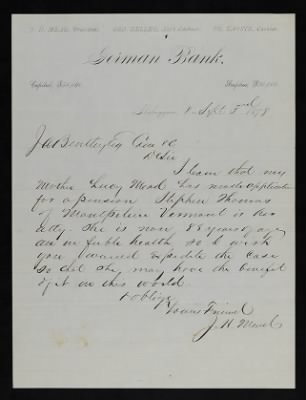 J. H. MEAD, President. GEO. HELLER, Vice President. Cashier.
German Bank.
Capital, $50,000. Surplus, $
Sheboygan, Sept 3rd 1878
J A Bentley Esq
D Sir
I learn that my
Mother Lucy Mead has made application
for a pension Stephen Thomas
of Montpelier Vermont is her
atty. She is now 88 years of age
and in feeble health so I wish
you would expedite the case
so that she may have the benefit
of it in this world
& oblige
Yours Friend
J. H. Mead